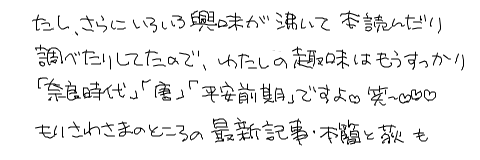 たし、さらにいろいろ興味が沸いて本読んだり
調べたりしてたので、わたしの趣味はもうすっかり
「奈良時代」「唐」「平安前期」ですよ♡笑〜♡♡♡
もりさわさまのところの最新記事・木簡と荻も